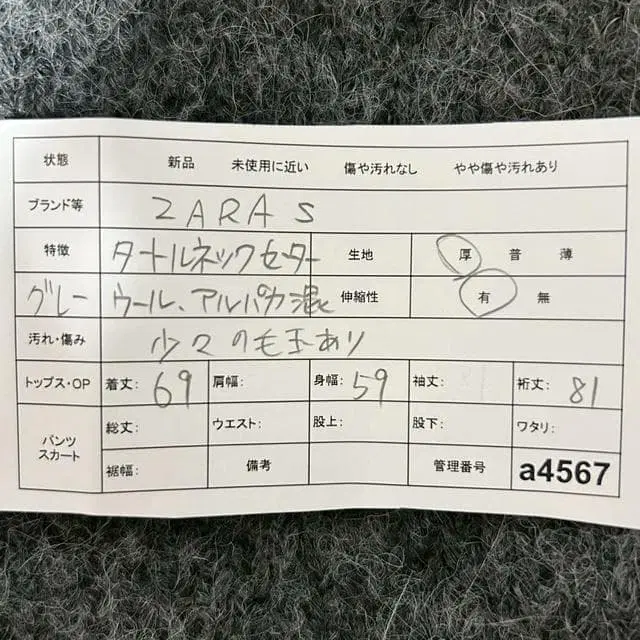 状態 新品 未使用に近い 傷や汚れなし やや傷や汚れあり
ブランド等 ZARA S
特徴 タートルネックセーター 生地 厚 普 薄
グレー ウール、アルパカ混 伸縮性 有 無
汚れ・傷み 少々の毛玉あり
トップス・OP 着丈: 69 肩幅: 身幅: 59 袖丈: 裄丈: 81
パンツ
スカート
総丈: ウエスト: 股上: 股下: ワタリ:
裾幅: 備考 管理番号 a4567